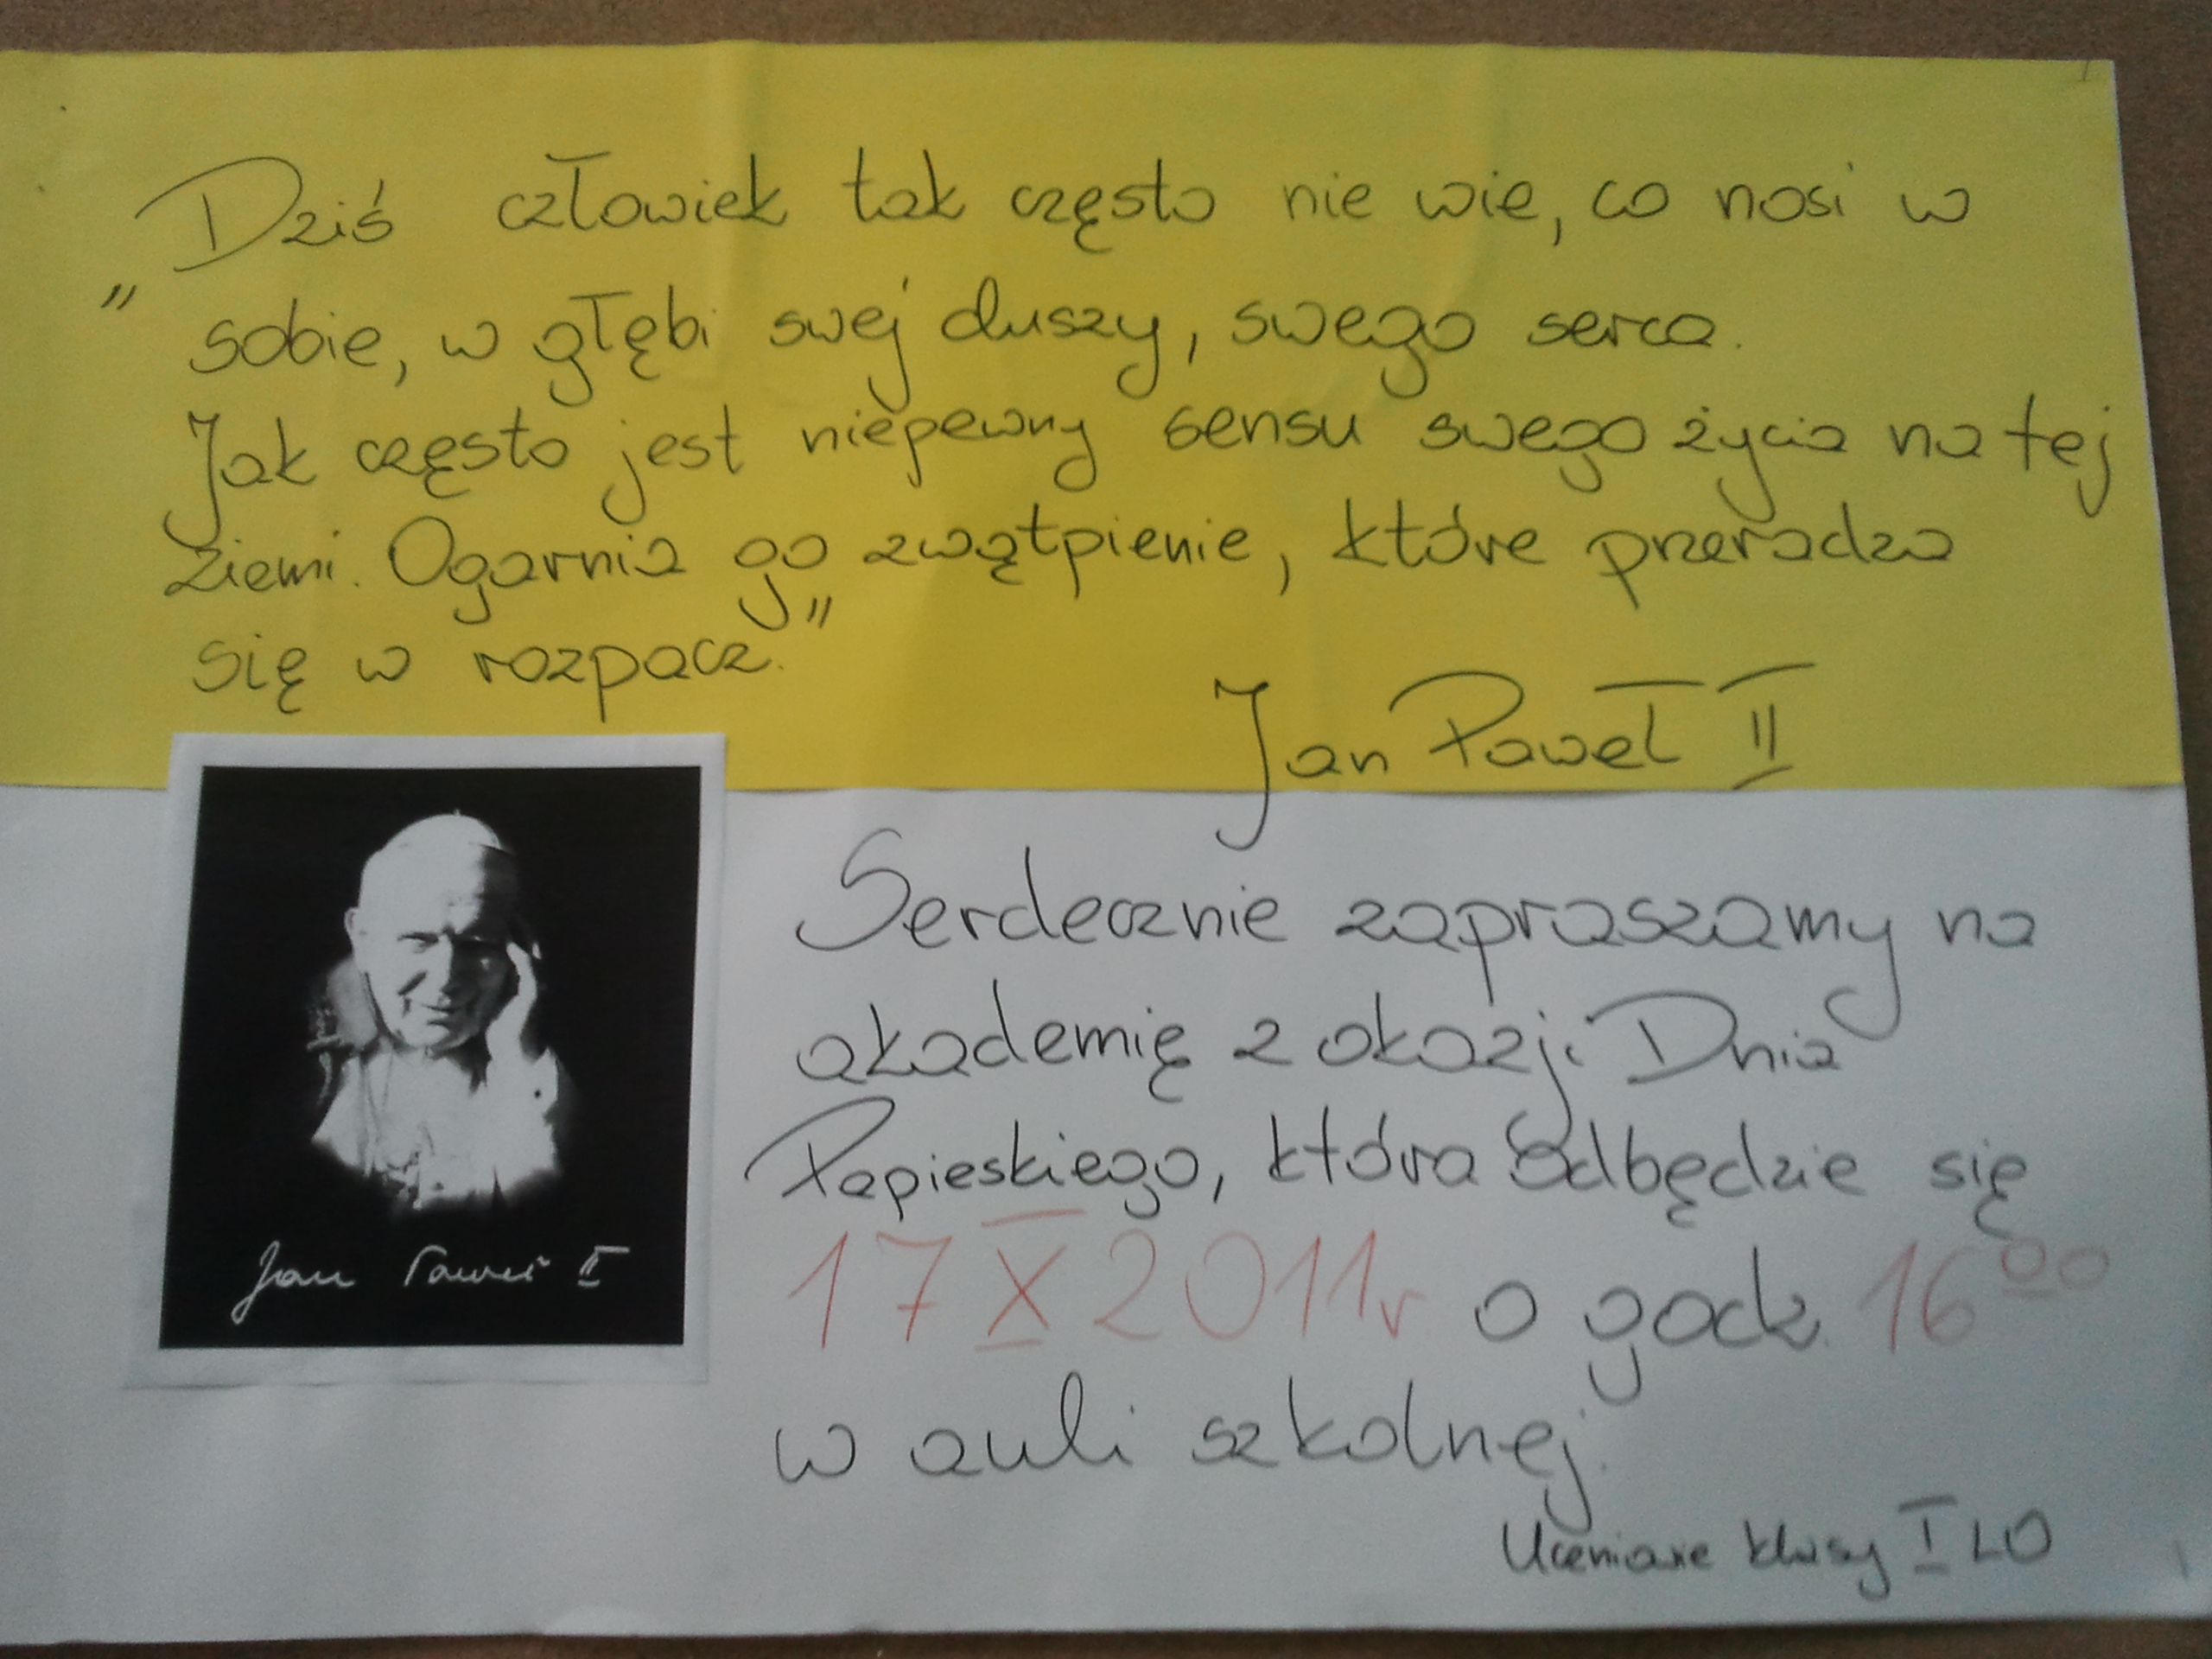 Dziś człowiek tak często nie wie, co nosi w
" sobie, w głębi swej duszy, swego serca.
Jak często jest niepewny sensu swego życia na tej
ziemi. Ogarnia go zwątpienie, które przeradza
się w rozpacz."
Jan Paweł II
Jan Paweł II
Serdecznie zapraszamy na
akademię z okazji Dnia
Papieskiego, która odbędzie się
17 X 2011r o godz. 16 00
w auli szkolnej.
Uczniowie klasy I LO